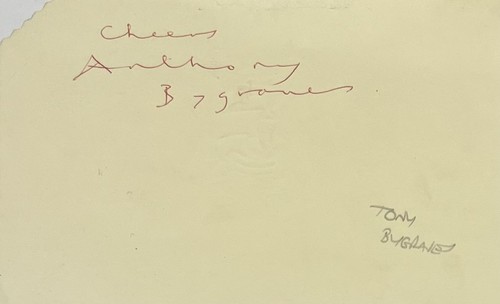 Cheers
Anthony
Bygraves.
TONY
BYGRAVES